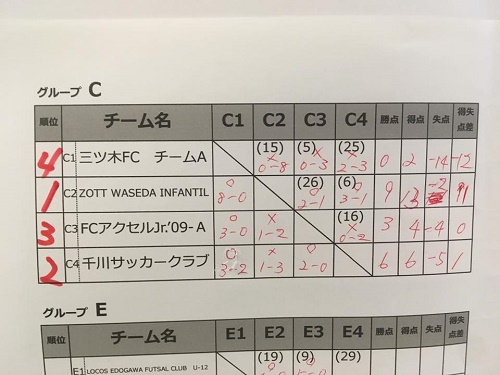 グループ C
順位 チーム名 C1 C2 C3 C4 勝点 得点 失点 得失点差
4 C1 三ツ木FC チームA (15) × 0-8 (5) × 0-3 (25) × 2-3 0 2 -14 -12
1 C2 ZOTT WASEDA INFANTIL ○ 8-0 (26) ○ 2-1 (6) ○ 3-1 9 13 -2 11
3 C3 FCアクセルJr.'09-A ○ 3-0 × 1-2 (16) × 0-2 3 4 -4 0
2 C4 千川サッカークラブ ○ 3-2 × 1-3 ○ 2-0 6 6 -5 1
グループ E
順位 チーム名 E1 E2 E3 E4 勝点 得点 失点 得失点差
E1 LOCOS EDOGAWA FUTSAL CLUB U-12 (19) (9) (29)